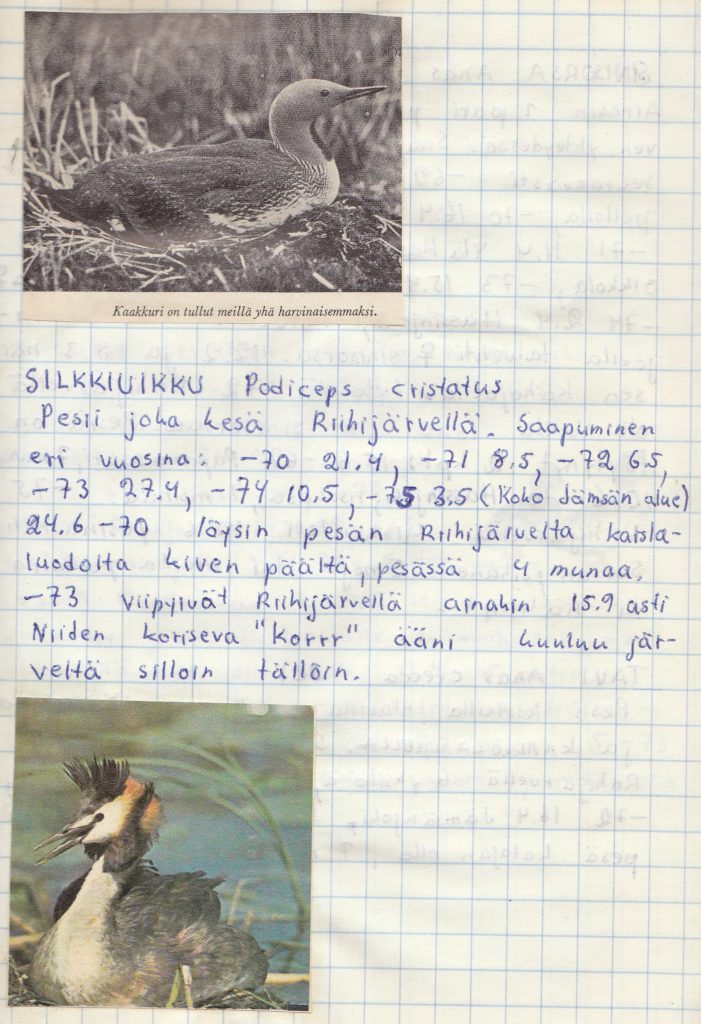 Kaakkuri on tullut meillä yhä harvinaisemmaksi.
SILKKIUIKKU Podiceps cristatus
Pesii joka kesä Riihijärvellä. Saapuminen
eri vuosina: -70 21.4, -71 8.5, -72 6.5,
-73 27.4, -74 10.5, -75 3.5 (Koko Jämsän alue)
24.6 -70 löysin pesän Riihijärveltä kaisla-
luodolta kiven päältä, pesässä 4 munaa.
-73 viipyivät Riihijärvellä ainakin 15.9 asti
Niiden koriseva "korrr" ääni kuuluu jär-
veltä silloin tällöin.